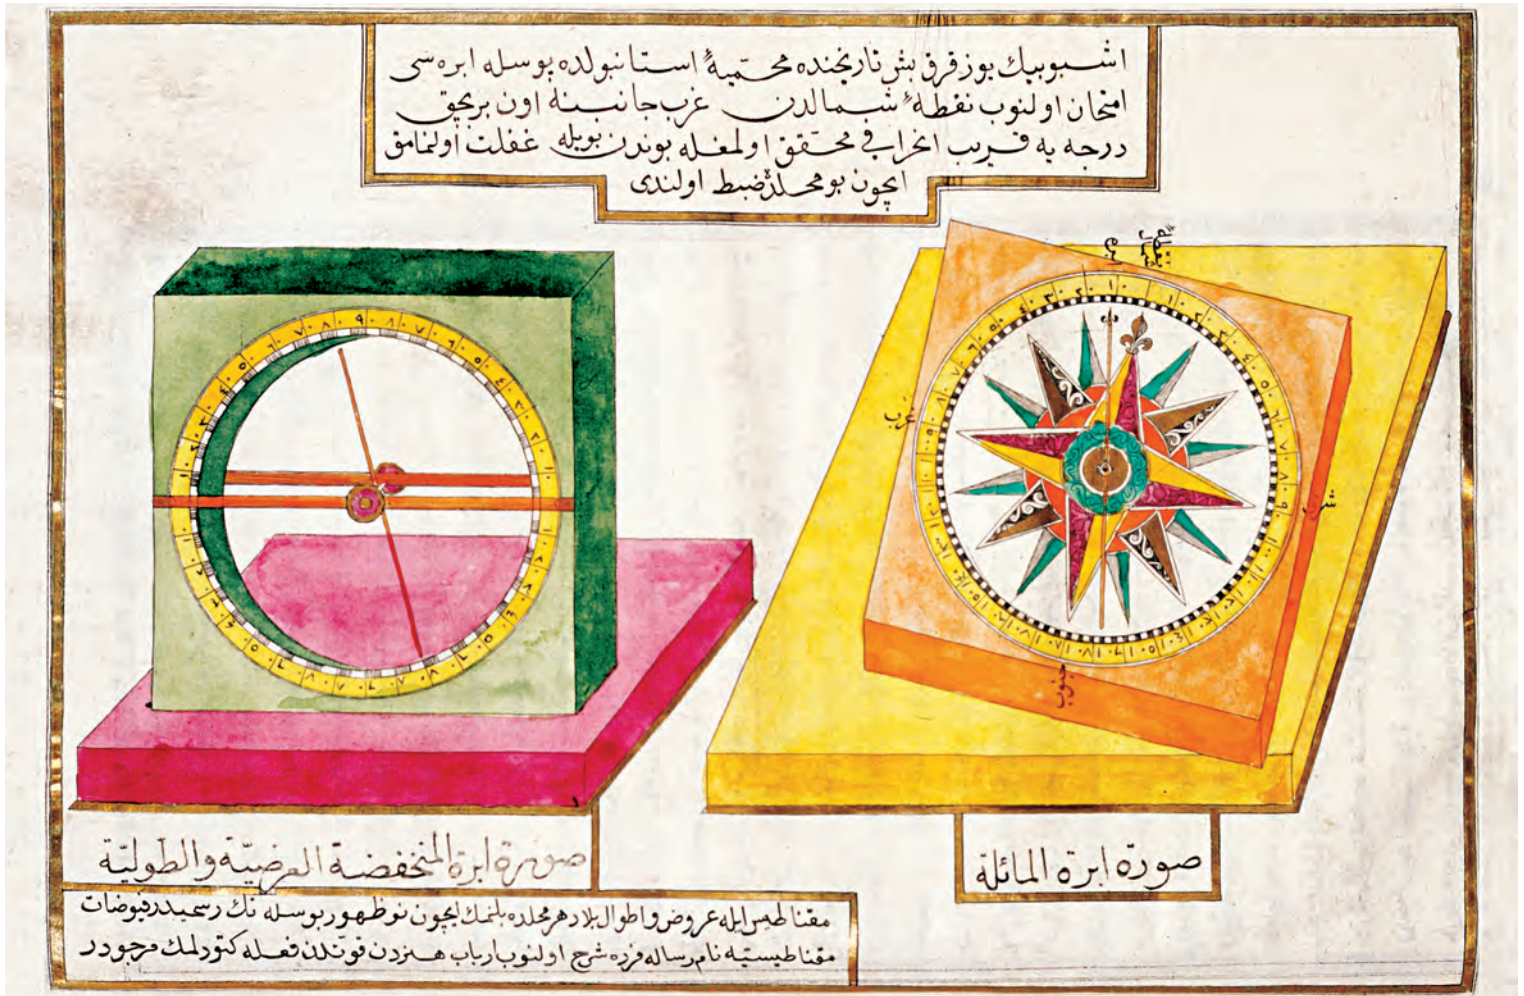 اشبو بيك يوز قرق بش تاريخنده محميهٔ استانبولده پوسله ابره سى
امتحان اولنوب نقطهٔ شمالدن غرب جانبنه اون بر بچق
درجه يه قريب انحرافى محقق اولمغله بوندن بويله غفلت اولنمامق
ايچون بو محلده ضبط اولندى
نقطهٔ شمال
غرب
شرق
جنوب
صورة ابرة المنخفضة العرضيّة والطوليّة
صورة ابرة المائلة
مقناطيس ايله عروض واطوال بلاد هر محلده بلنمك ايچون نو ظهور پوسله نك رسميدر فيوضات
مقناطيسيّه نام رساله مزده شرح اولنوب ارباب هنردن قوتدن فعله كتورلمك مرجودر